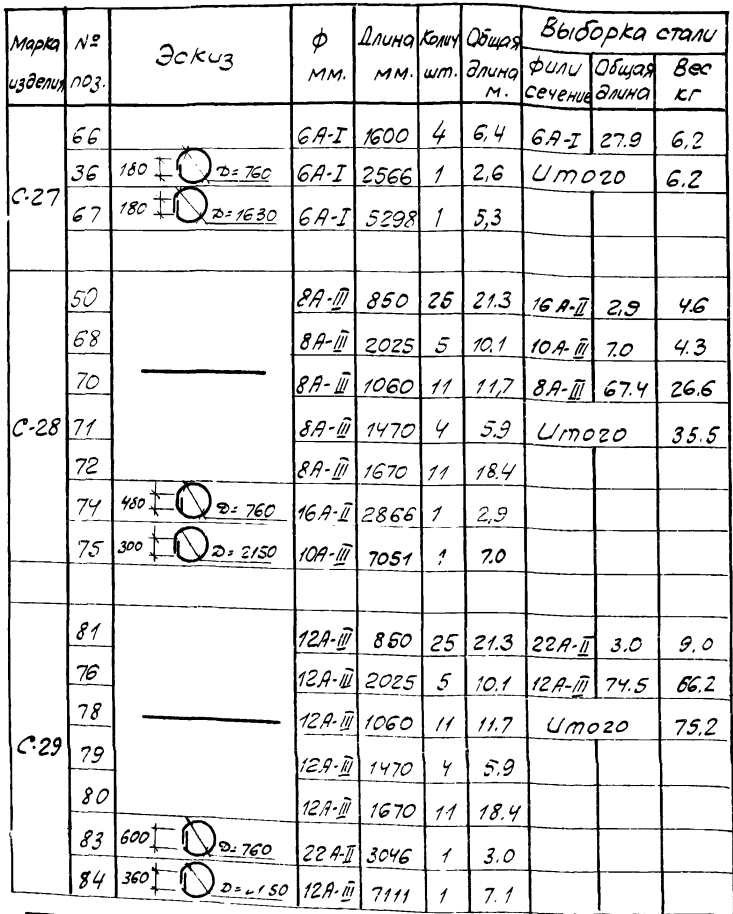 Марка изделия | № поз. | Эскиз | ф мм. | Длина мм. | Колич шт. | Общая длина м. | Выборка стали
ф или сечение | Общая длина | Вес кг
С-27
66 | 6А-I | 1600 | 4 | 6,4 | 6А-I | 27.9 | 6,2
36 | 180 D=760 | 6А-I | 2566 | 1 | 2,6 | Итого | 6.2
67 | 180 D=1630 | 6А-I | 5298 | 1 | 5,3
С-28
50 | 8А-III | 850 | 25 | 21.3 | 16А-II | 2,9 | 4.6
68 | 8А-III | 2025 | 5 | 10.1 | 10А-III | 7.0 | 4.3
70 | 8А-III | 1060 | 11 | 11,7 | 8А-III | 67.4 | 26.6
71 | 8А-III | 1470 | 4 | 5.9 | Итого | 35.5
72 | 8А-III | 1670 | 11 | 18.4
74 | 480 D=760 | 16А-II | 2866 | 1 | 2,9
75 | 300 D=2150 | 10А-III | 7051 | 7.0
С-29
81 | 12А-III | 850 | 25 | 21.3 | 22А-II | 3.0 | 9.0
76 | 12А-III | 2025 | 5 | 10.1 | 12А-III | 74.5 | 66.2
78 | 12А-III | 1060 | 11 | 11.7 | Итого | 75,2
79 | 12А-III | 1470 | 4 | 5.9
80 | 12А-III | 1670 | 11 | 18.4
83 | 600 D=760 | 22А-II | 3046 | 1 | 3.0
84 | 360 | 12А-III | 7111 | 1 | 7.1